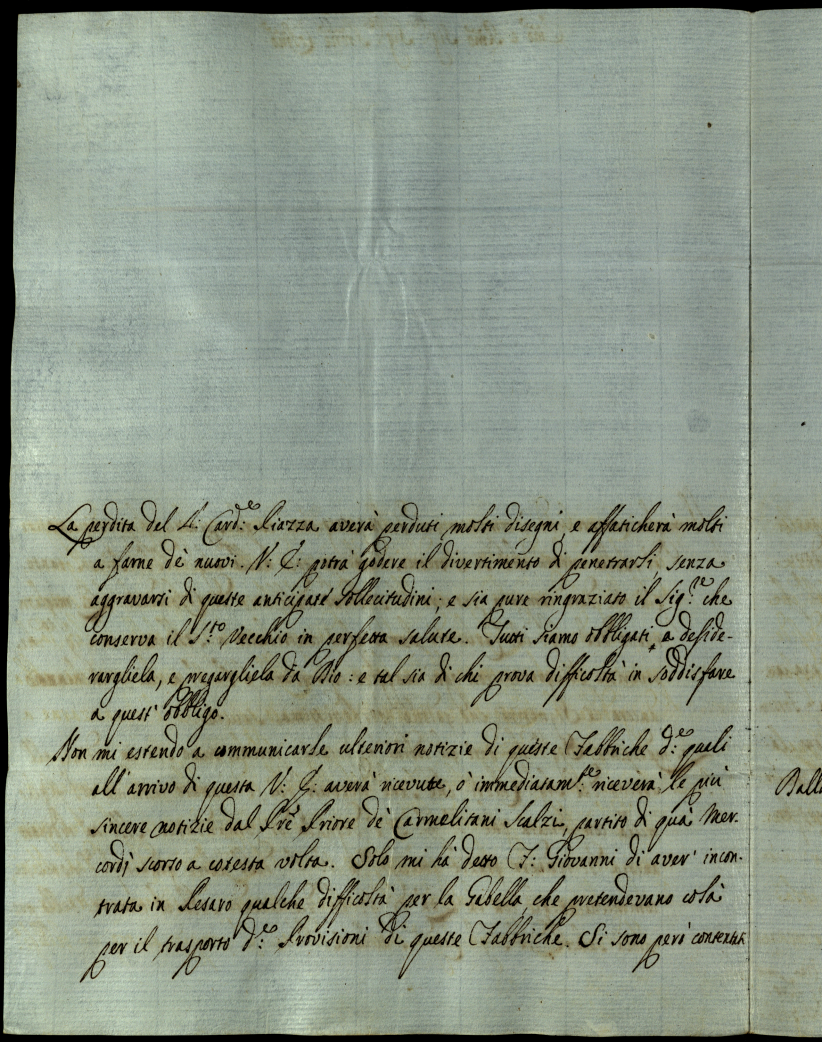 La perdita del S: Card:le Piazza averà perduti molti disegni, e affaticherà molti
a farne dè nuovi. V: E: potrà godere il divertimento di penetrarli senza
aggravarsi di queste anticipate sollecitudini; e sia pure ringraziato il Sig:re che
conserva il S:to Vecchio in perfetta salute. Tutti siamo obbligati a deside-
rargliela, e pregargliela da Dio: e tal sia di chi prova difficoltà in soddisfare
a quest' obbligo.
Non mi estendo a communicarle ulteriori notizie di queste Fabbriche d:e quali
all'arrivo di questa V: E: averà ricevute, ò immediatam:te riceverà le più
sincere notizie dal Pre Priore dè Carmelitani Scalzi, partito di quà Mer-
cordì scorso a cotesta volta. Solo mi hà detto F: Giovanni di aver' incon-
trata in Pesaro qualche difficoltà per la Gabella che pretendevano colà
per il trasporto d:e Provisioni di queste Fabbriche. Si sono però contentati